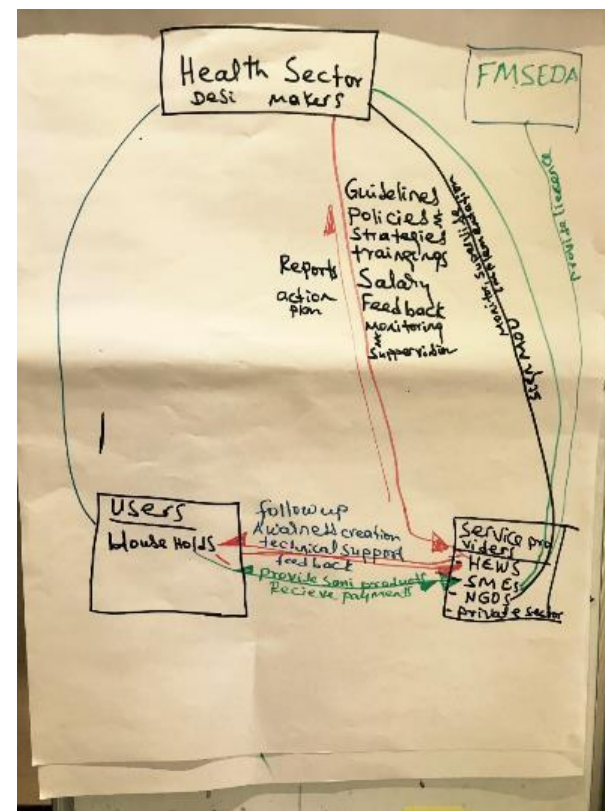 Health Sector
Desi Makers
FMSEDA
Guidelines
Policies &
Strategies
trangings
Salary
Feedback
Monitoring
&
Suppervision
Reports
action
plan
Monitor, Supervise
implementation
Sign MOU
Provide licence
Users
House Holds
followup
Awarness creation
technical support
feedback
provide sani products
Recieve payments
Service pro
viders
- HEWS
- SMEs
- NGOs
- private sector